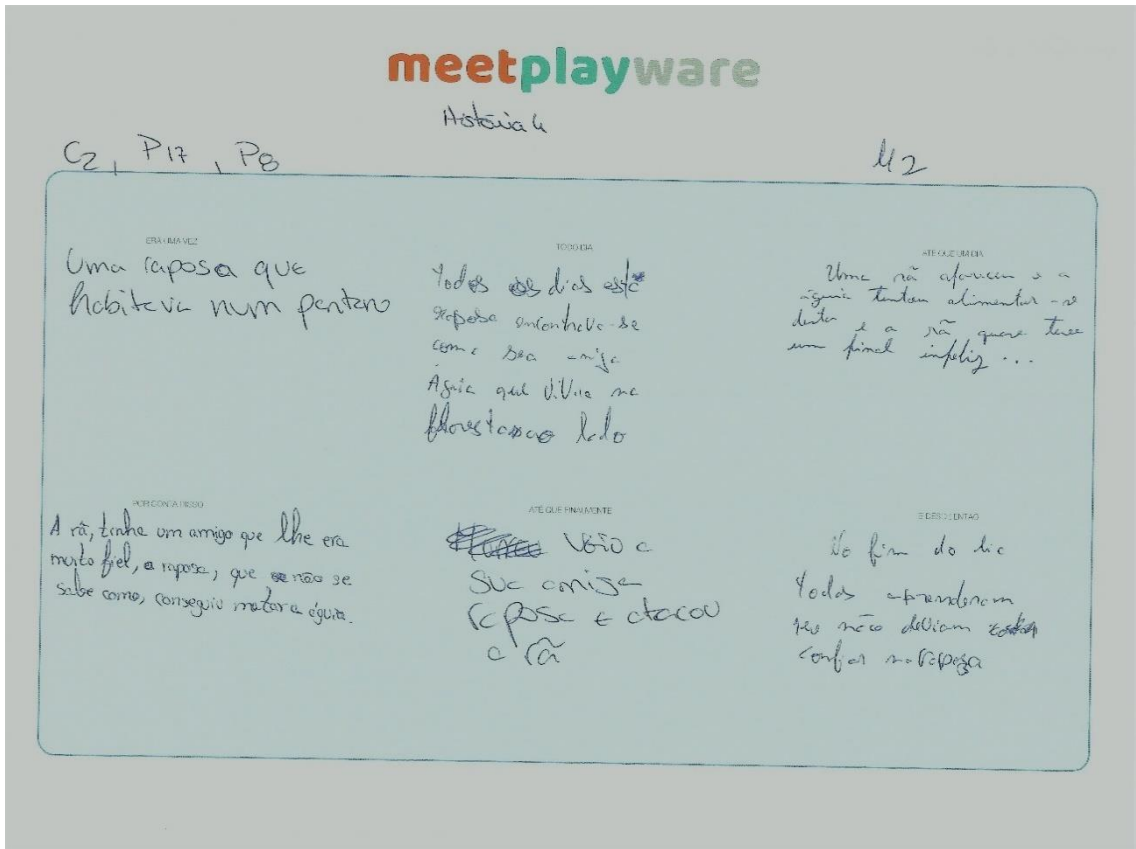 meetplayware
História 4
C2, P17, P8
M2
ERA UMA VEZ
Uma raposa que
habitava num pantano
TODO DIA
Todos os dias esta
raposa encontrava-se
com a sua amiga
Águia que vivia na
floresta ao lado
ATÉ QUE UM DIA
Uma rã apareceu e a
águia tentou alimentar-se
desta e a rã quase teve
um final infeliz...
POR CONTA DISSO
A rã, tinha um amigo que lhe era
muito fiel, a raposa, que não se
sabe como, conseguiu matar a águia.
ATÉ QUE FINALMENTE
Veio a
sua amiga
raposa e atacou
a rã
E DESDE ENTÃO
No fim do dia
todos aprenderam
não deviam
confiar na raposa